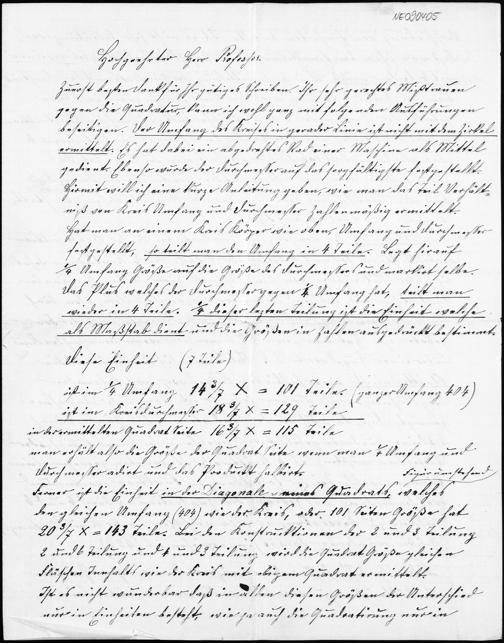 NE030405
Hochgeehrter Herr Professor.
Zuerst besten Dank für Ihr gütiges Schreiben. Ihr sehr gerechtes Mißtrauen
gegen die Quadratur, kann ich wohl ganz mit folgenden Ausführungen
beseitigen. Der Umfang des Kreises in gerader Linie ist nicht mit dem Zirkel
ermittelt. Es hat dabei ein abgedrehtes Rad einer Maschine als Mittel
gedient. Ebenso wurde der Durchmesser auf das sorgfältigste festgestellt.
Hiermit will ich eine kurze Anleitung geben, wie man das Teil Verhält-
niß von Kreis Umfang und Durchmesser Zahlenmäßig ermittelt.
Hat man an einem Kreis Körper wie oben, Umfang und Durchmesser
festgestellt, so teilt man den Umfang in 4 Teile. Legt hierauf
¼ Umfang Größe auf die Größe des Durchmessers und markirt selbe.
Das Plus welches der Durchmesser gegen ¼ Umfang hat, teilt man
wieder in 4 Teile. ¼ dieser lezten Teilung ist die Einheit welche
als Maßstab dient und die Größen in Zahlen ausgedrückt bestimmt.
Diese Einheit (7 Teile)
ist im ¼ Umfang 14 3/7 X = 101 Teile. (ganzer Umfang 404)
ist im Kreisdurchmesser 18 3/7 X = 129 Teile
in der ermittelten Quadrat Seite 16 3/7 X = 115 Teile
man erhält also die Größe der Quadrat Seite wenn man ¼ Umfang und
Durchmesser adirt und das Produckt halbirt. Figur umstehend
Ferner ist die Einheit in der Diagonale eines Quadrats, welches
den gleichen Umfang (404) wie der Kreis, oder 101 Seiten Größe hat
20 3/7 X = 143 Teile. Bei den Konstruktionen der 2 und 3 Teilung
2 und 6 Teilung und 1 und 3 Teilung wird die Quadrat Größe gleichen
Flächen Innhalts wie der Kreis mit obigem Quadrat ermittelt.
Ist es nicht wunderbar daß in allen diesen Größen der Unterschied
nur in Einheiten besteht, wie ja auch die Quadratirung nur in